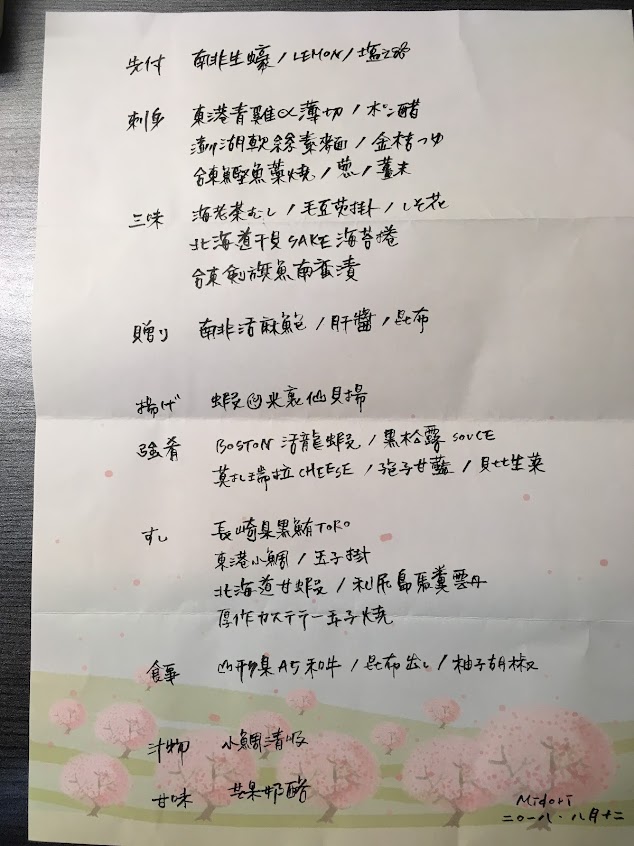 先付 南非生蠔/LEMON/塩之路
刺身 東港青雞魚薄切/ポン醋
澎湖軟絲素麵/金桔つゆ
台東鰹魚藁燒/蔥/薑末
三味 海老茶むし/毛豆茨掛/しそ花
北海道干貝SAKE海苔捲
台東劍旗魚南蛮漬
贈り 南非活麻鮑/肝醬/昆布
揚げ 蝦 米裏仙貝揚
強肴 BOSTON活龍蝦/黑松露SOUCE
莫札瑞拉CHEESE/孢子甘藍/貝比生菜
すし 長崎県黒鮪TORO
東港小鯛/玉子掛
北海道甘蝦/利尻島馬糞雲丹
厚作カステラー玉子燒
食事 山形県A5和牛/昆布出し/柚子胡椒
汁物 小鯛清吸
甘味 芒果奶酪
Midori
二〇一八.八月十二